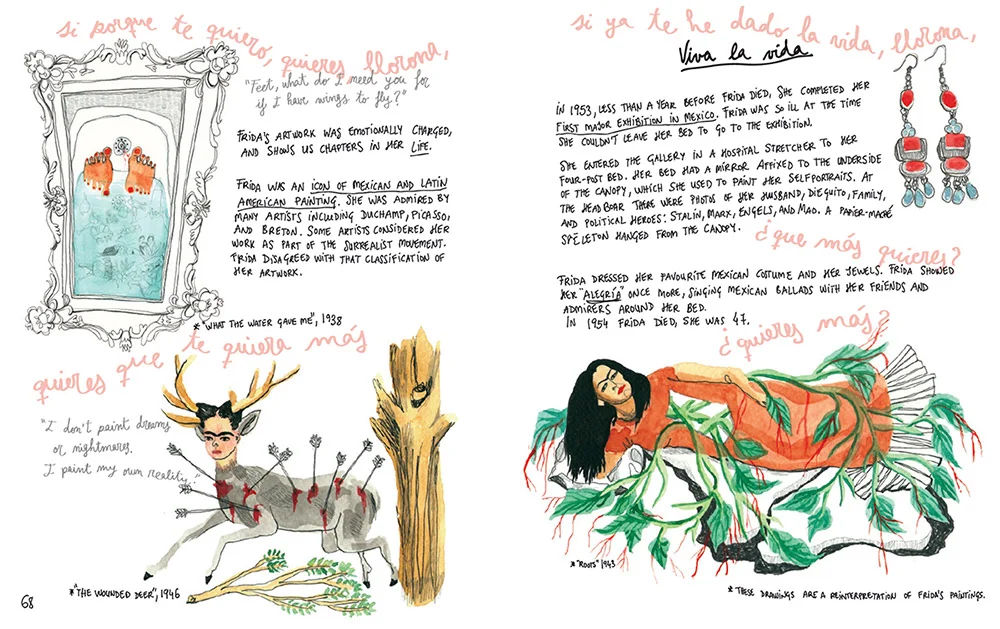 si porque te quiero, quieres llorona,
"Feet, what do I need you for
if I have wings to fly?"
FRIDA'S ARTWORK WAS EMOTIONALLY CHARGED,
AND SHOWS US CHAPTERS IN HER LIFE.
FRIDA WAS AN ICON OF MEXICAN AND LATIN
AMERICAN PAINTING. SHE WAS ADMIRED BY
MANY ARTISTS INCLUDING DUCHAMP, PICASSO,
AND BRETON. SOME ARTISTS CONSIDERED HER
WORK AS PART OF THE SURREALIST MOVEMENT.
FRIDA DISAGREED WITH THAT CLASSIFICATION OF
HER ARTWORK.
* "WHAT THE WATER GAVE ME", 1938
quieres que te quiera más
"I don't paint dreams
or nightmares.
I paint my own reality."
* "THE WOUNDED DEER", 1946
68
si ya te he dado la vida, llorona,
Viva la vida
IN 1953, LESS THAN A YEAR BEFORE FRIDA DIED, SHE COMPLETED HER
FIRST MAJOR EXHIBITION IN MEXICO. FRIDA WAS SO ILL AT THE TIME
SHE COULDN'T LEAVE HER BED TO GO TO THE EXHIBITION.
SHE ENTERED THE GALLERY IN A HOSPITAL STRETCHER TO HER
FOUR-POST BED. HER BED HAD A MIRROR AFFIXED TO THE UNDERSIDE
OF THE CANOPY, WHICH SHE USED TO PAINT HER SELFPORTRAITS. AT
THE HEADBOAR THERE WERE PHOTOS OF HER HUSBAND, DIEGUITO, FAMILY,
AND POLITICAL HEROES: STALIN, MARX, ENGELS, AND MAO. A PAPIER-MAGÉ
SKELETON HANGED FROM THE CANOPY.
¿que más quieres?
FRIDA DRESSED HER FAVOURITE MEXICAN COSTUME AND HER JEWELS. FRIDA SHOWED
HER "ALEGRÍA" ONCE MORE, SINGING MEXICAN BALLADS WITH HER FRIENDS AND
ADMIRERS AROUND HER BED.
IN 1954 FRIDA DIED, SHE WAS 47.
¿quieres más?
* "ROOTS" 1943
* THESE DRAWINGS ARE A REINTERPRETATION OF FRIDA'S PAINTINGS.